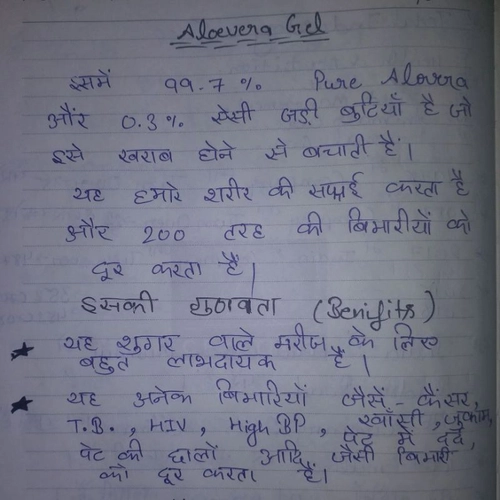 Aloevera Gel
इसमें 99.7% Pure Alovera
और 0.3% ऐसी जड़ी बुटियाँ है जो
इसे खराब होने से बचाती हैं।
यह हमारे शरीर की सफाई करता है
और 200 तरह की बिमारीयों को
दूर करता है।
इसकी गुणवता (Benifits)
★ यह शुगर वाले मरीज के लिए
बहुत लाभदायक है।
★ यह अनेक बिमारियों जैसें - कैंसर,
T.B., HIV, High BP, खाँसी, जुकाम,
पेट में दर्द,
पेट की छालों आदि जैसी बिमारी
को दूर करता है।